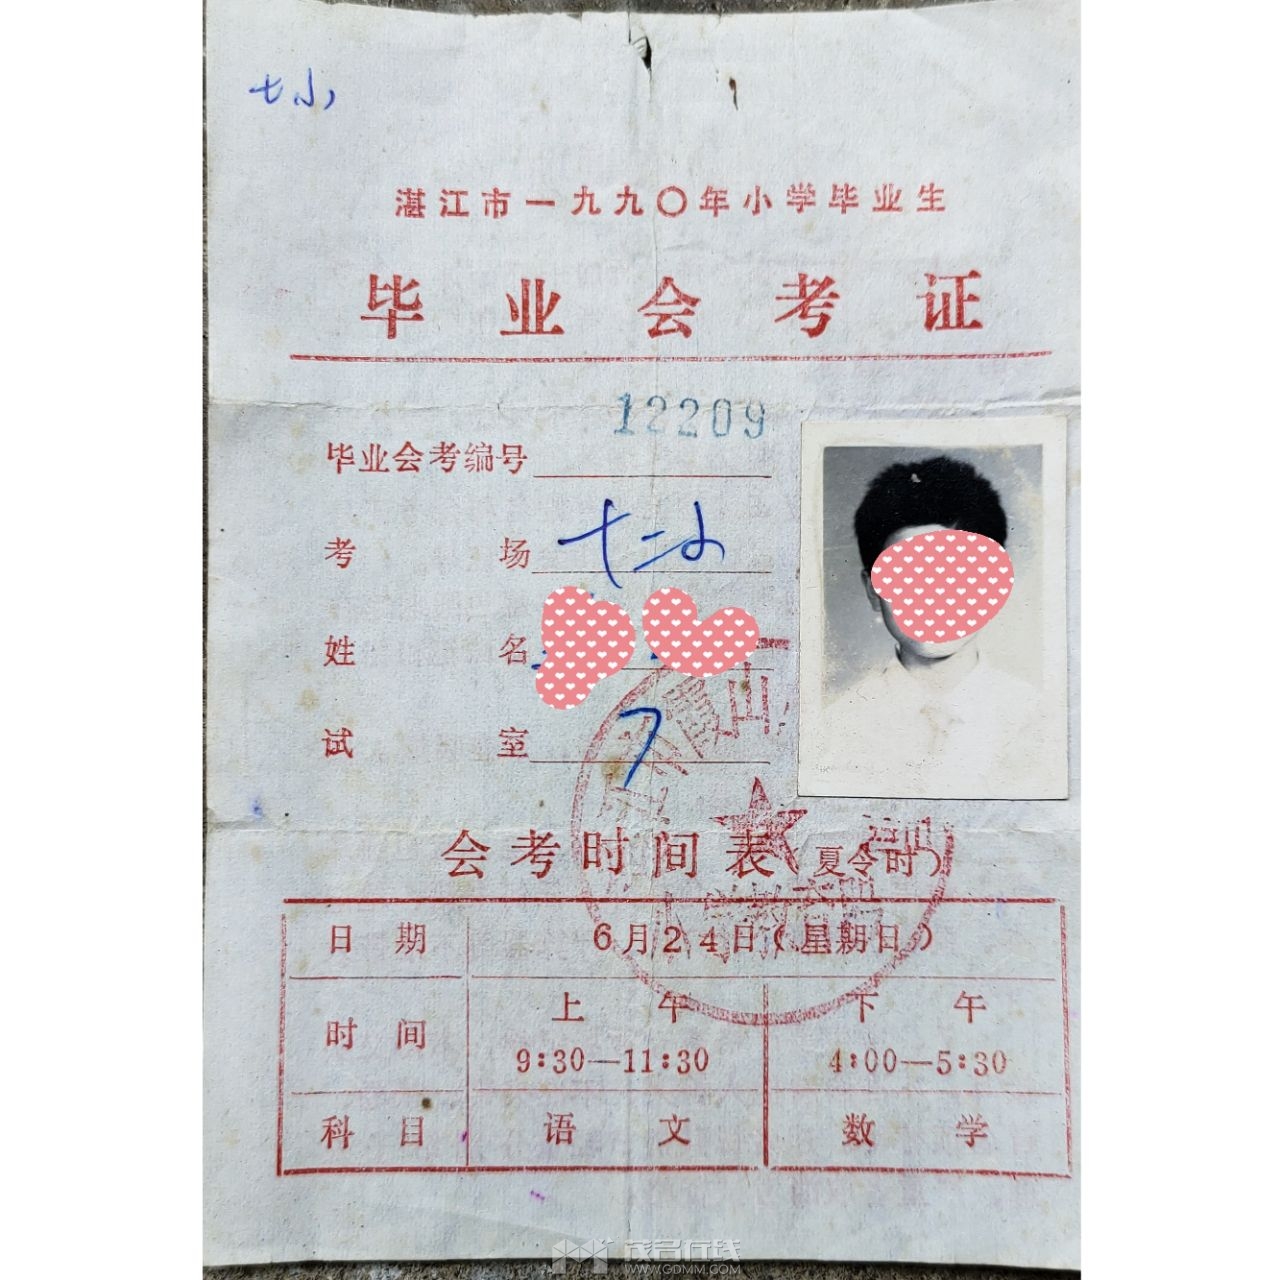 七小
湛江市一九九〇年小学毕业生
毕业会考证
毕业会考编号 12209
考场 十二小
姓名
试室 7
霞山
会考时间表(夏令时)
小学教育
日期 6月24日(星期日)
时间 上午 下午
9:30—11:30 4:00—5:30
科目 语文 数学
茂名在线
WWW.GDMM.COM